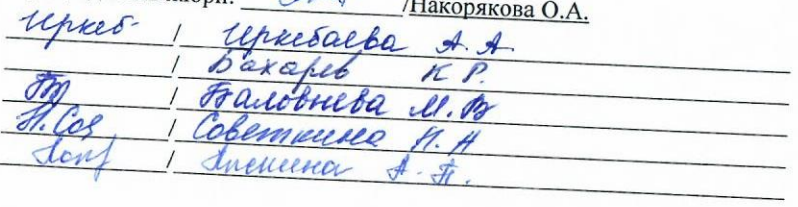 /Накорякова О.А.
Иркеб- / Иркебаева А.А.
/ Бахарев К Р.
/ Баловнева М.В
Н.Сов / Советкина Н.Н
/ А.П.